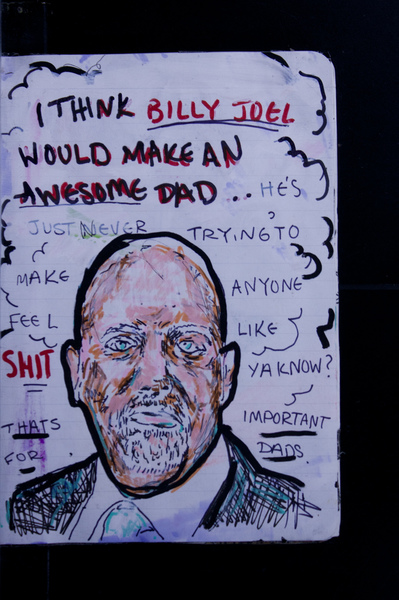 I THINK BILLY JOEL
WOULD MAKE AN
AWESOME DAD .. HE'S
JUST NEVER TRYING TO
MAKE ANYONE
FEEL LIKE
SHIT YA KNOW?
THATS IMPORTANT
FOR DADS.